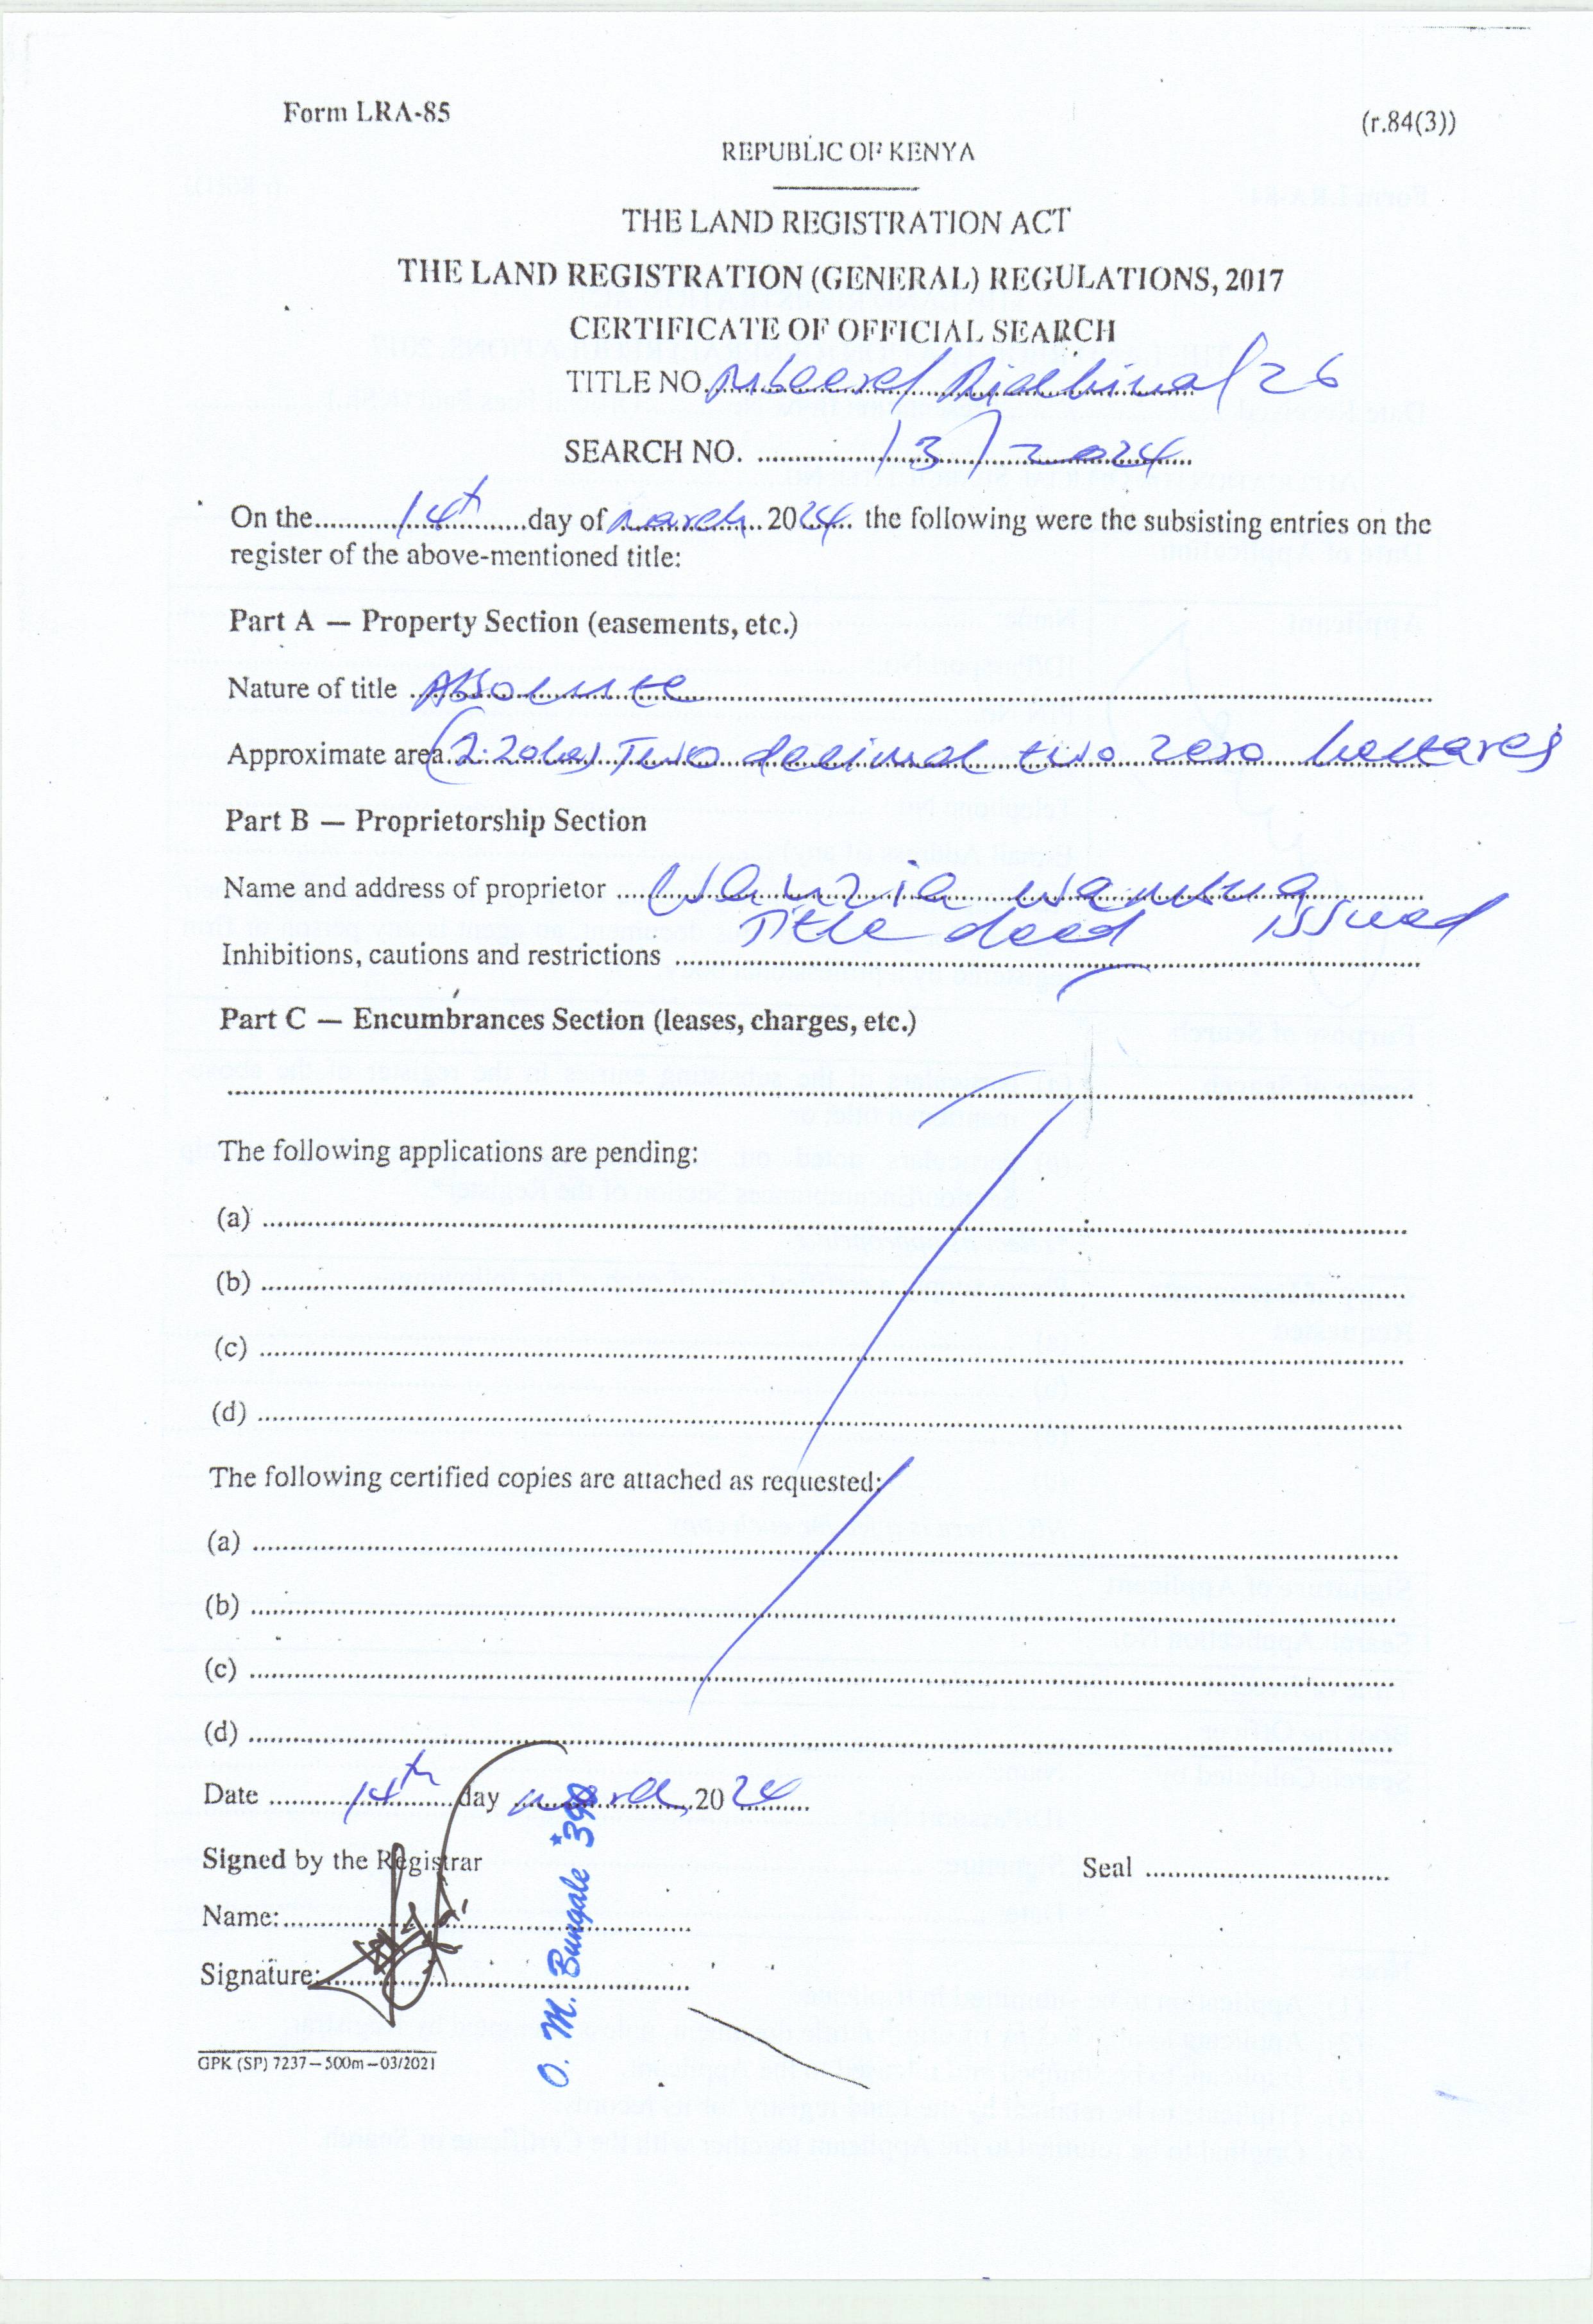 Form LRA-85
(r.84(3))
REPUBLIC OF KENYA
THE LAND REGISTRATION ACT
THE LAND REGISTRATION (GENERAL) REGULATIONS, 2017
CERTIFICATE OF OFFICIAL SEARCH
TITLE NO. /26
SEARCH NO. 13/2024
On the 14th day of march 2024 the following were the subsisting entries on the
register of the above-mentioned title:
Part A — Property Section (easements, etc.)
Nature of title Absolute
Approximate area (2.20ha) Two decimal two zero hectares
Part B — Proprietorship Section
Name and address of proprietor Wanzia Wambua
Title deed issued
Inhibitions, cautions and restrictions
Part C — Encumbrances Section (leases, charges, etc.)
The following applications are pending:
(a)
(b)
(c)
(d)
The following certified copies are attached as requested:
(a)
(b)
(c)
(d)
Date 14th day march, 2024
Signed by the Registrar
Seal
Name:
Signature:
O. M. Bungale *390
GPK (SP) 7237—500m—03/2021